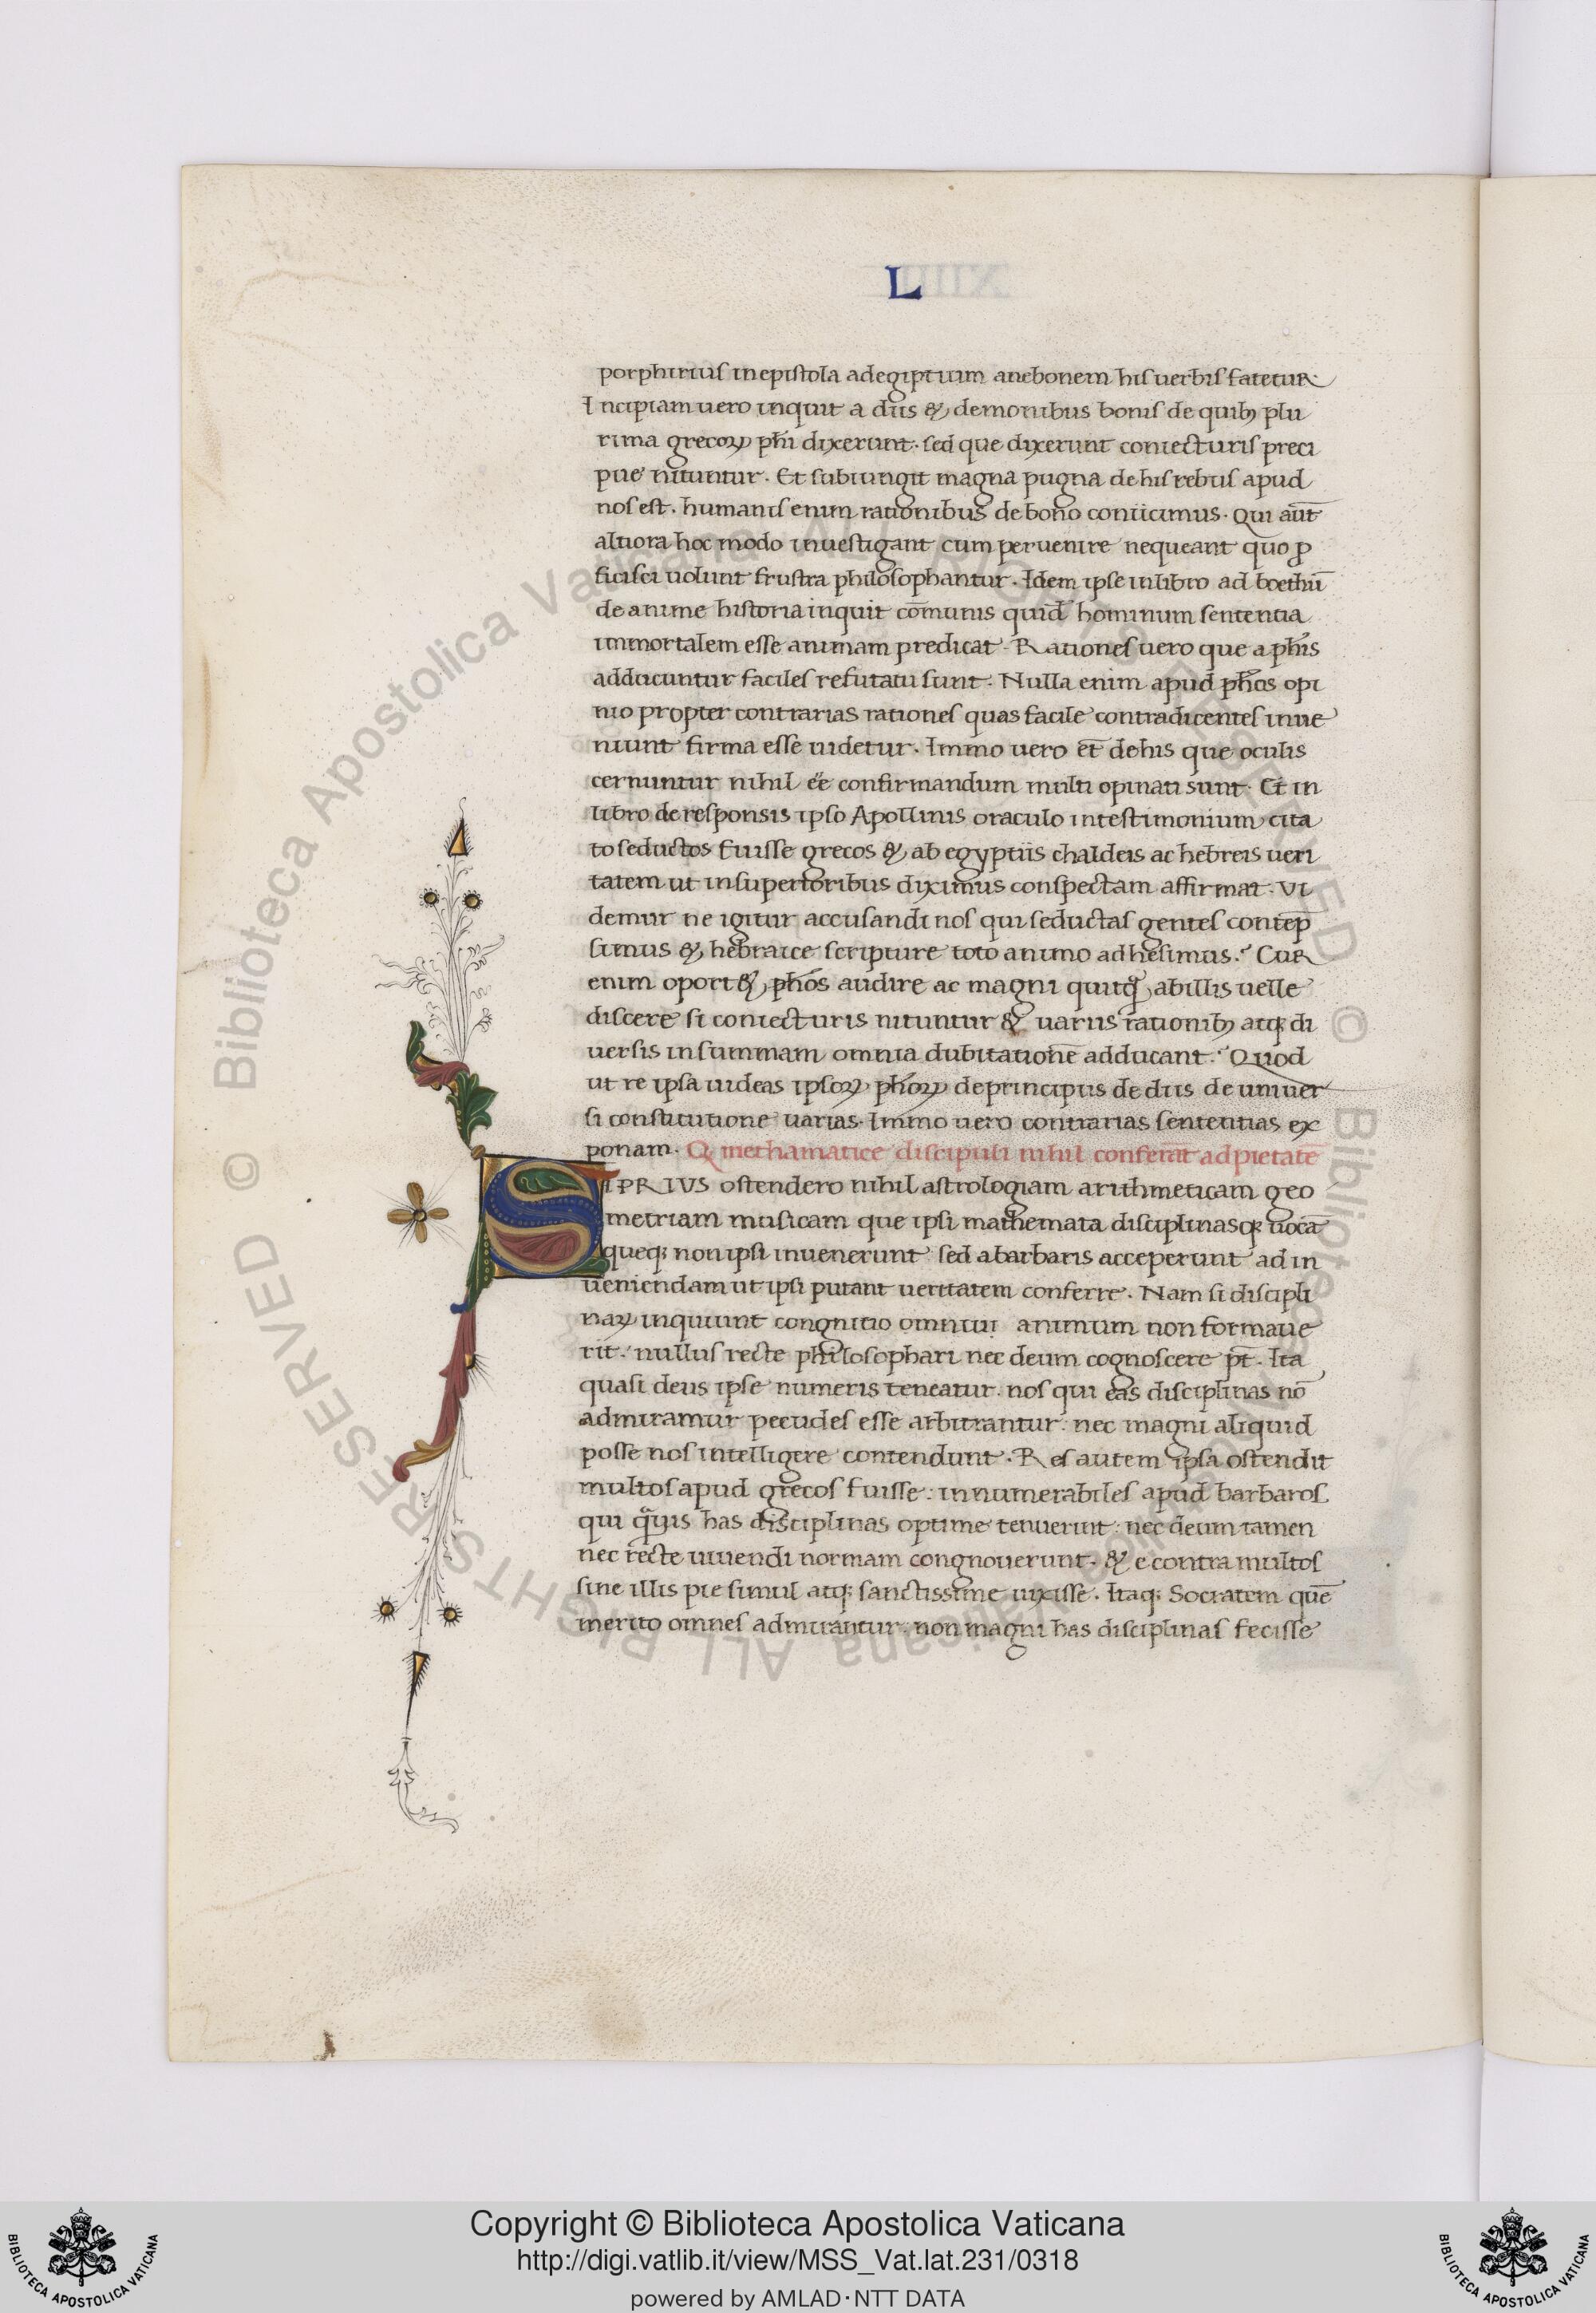 L
porphirius in epistola ad egiptium anebonem his uerbis fatetur
Incipiam uero inquit a diis & demonibus bonis de quibꝫ plu
rima grecoꝝ phi̅ dixerunt. sed que dixerunt coniecturis preci
pue nituntur. Et subiungit magna pugna de his rebus apud
nos est. humanis enim rationibus de bono coniicimus. Qui au̅t
altiora hoc modo inuestigant cum peruenire nequeant quo ꝓ
ficisci uolunt frustra philosophantur. Idem ipse in libro ad boethu̅
de anime historia inquit co̅munis quid̅ hominum sententia
immortalem esse animam predicat. Rationes uero que a phi̅s
adducuntur faciles refutatu sunt. Nulla enim apud pho̅s opi
nio propter contrarias rationes quas facile contradicentes inue
niunt firma esse uidetur. Immo uero et̅ de his que oculis
cernuntur nihil ee̅ confirmandum multi opinati sunt. Et in
libro de responsis ipso Apollinis oraculo in testimonium cita
to seductos fuisse grecos & ab egyptiis chaldeis ac hebreis ueri
tatem ut in superioribus diximus conspectam affirmat. Vi
demur ne igitur accusandi nos qui seductas gentes conte̅p
simus & hebraice scripture toto animo adhesimus? Cur
enim oport& pho̅s audire ac magni quitq̃ ab illis uelle
discere si coniecturis nituntur & uariis rationibꝫ atqꝫ di
uersis in summam omnia dubitatione̅ adducant? Quod
ut re ipsa uideas ipsoꝝ pho̅ꝝ de principiis de diis de uniuer
si constitutione uarias. Immo uero contrarias sententias ex
ponam. Q̃ methamatice discipuli nihil confera̅t ad pietate̅
SI PRIVS ostendero nihil astrologiam arithmeticam geo
metriam musicam que ipsi mathemata disciplinasqꝫ uoca̅
queqꝫ non ipsi inuenerunt sed a barbaris acceperunt ad in
ueniendam ut ipsi putant ueritatem conferre. Nam si discipli
naꝝ inquiunt congnitio omniu̅ animum non formaue
rit. nullus recte philosophari nec deum cognoscere pt̅. Ita
quasi deus ipse numeris teneatur. nos qui eas disciplinas no̅
admiramur pecudes esse arbitrantur: nec magni aliquid
posse nos intelligere contendunt. Res autem ipsa ostendit
multos apud grecos fuisse: innumerabiles apud barbaros
qui q̃uis has disciplinas optime tenuerint: nec deum tamen
nec recte uiuendi normam congnouerunt. & e contra multos
sine illis pie simul atqꝫ sanctissime uixisse. Itaqꝫ Socratem que̅
merito omnes admirantur: non magni has disciplinas fecisse
© Biblioteca Apostolica Vaticana ALL RIGHTS RESERVED
© Biblioteca Apostolica Vaticana ALL RIGHTS RESERVED
Copyright © Biblioteca Apostolica Vaticana
http://digi.vatlib.it/view/MSS_Vat.lat.231/0318
powered by AMLAD·NTT DATA
BIBLIOTECA APOSTOLICA VATICANA
BIBLIOTECA APOSTOLICA VATICANA